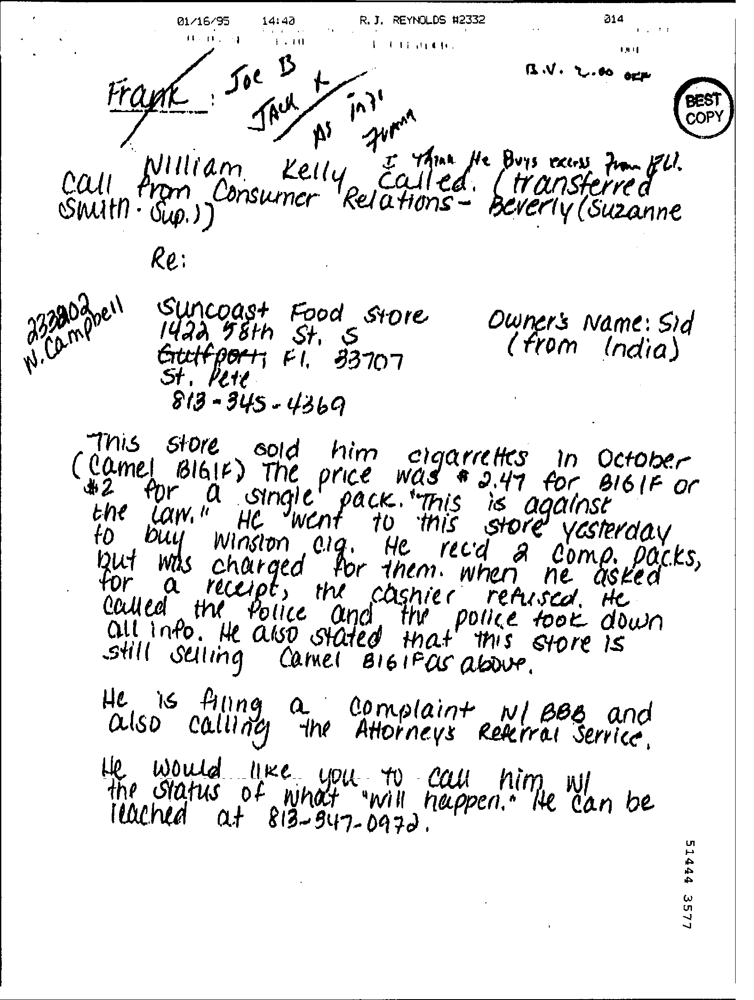 01/16/95 14:40 R. J. REYNOLDS #2332 014
B.V. 2.00 OFF
BEST COPY
Frank : Joe B
Jack K
As
I Think He Buys excess From
William Kelly called. (transferred
call from Consumer Relations - Beverly (Suzanne
Smith - Sup.))
Re:
233202
W. Campbell
Suncoast Food Store Owner's Name: Sid
1422 58th St. S (from India)
Gulfport, Fl. 33707
St. Pete
813-345-4369
This store sold him cigarrettes in October
(Camel B1G1F) The price was $2.47 for B1G1F or
$2 for a single pack. "This is against
the law." He went to this store yesterday
to buy Winston cig. He rec'd 2 comp. packs,
but was charged for them. When he asked
for a receipt, the cashier refused. He
called the police and the police took down
all info. He also stated that this store is
still selling Camel B1G1F as above.
He is filing a complaint w/ BBB and
also calling the Attorneys Referral Service.
He would like you to call him w/
the status of what "will happen." He can be
reached at 813-347-0972.
51444 3577